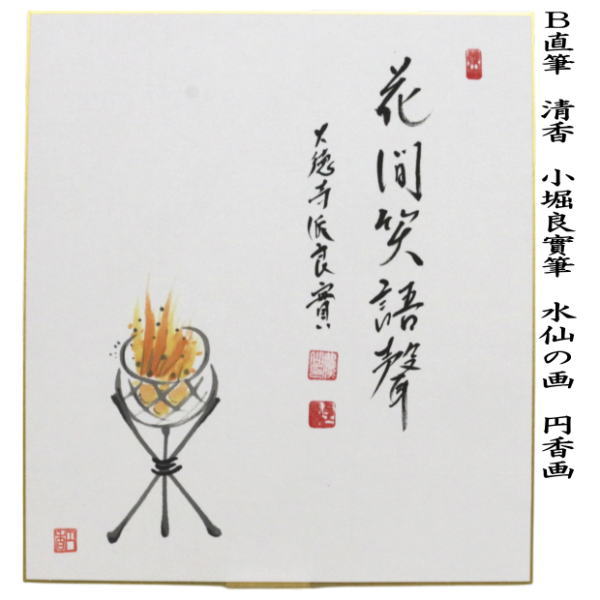 B直筆　清香　小堀良實筆　水仙の画　円香画
花間笑語聲
大徳寺派良實
円香